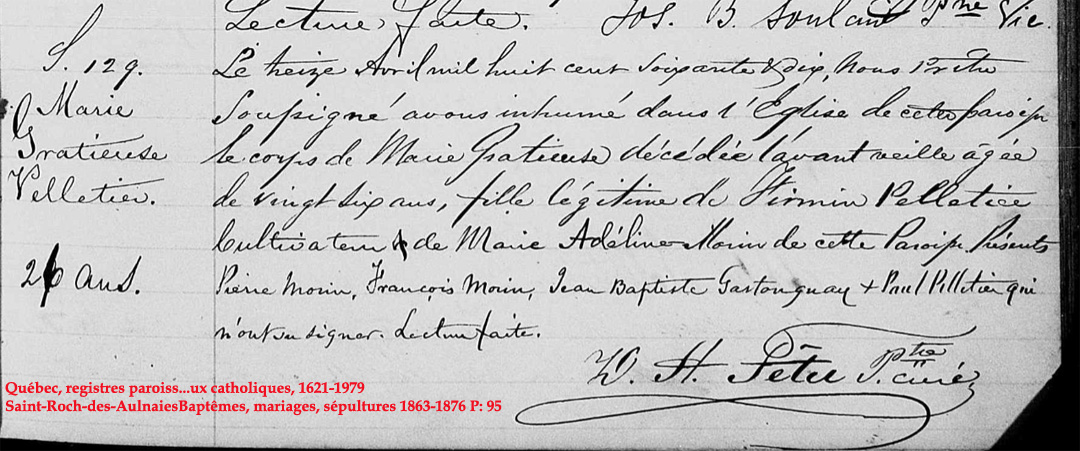 Lecture faite. Jos. B. Soulard Ptre Vic.
S. 129.
Marie
Gratieuse
Pelletier.
26 ans.
Le treize Avril mil huit cent soixante & dix, Nous Prêtre
Soussigné avons inhumé dans l'Eglise de cette paroisse
le corps de Marie Gratieuse décédée l'avant veille âgée
de vingt six ans, fille légitime de Firmin Pelletier
Cultivateur & de Marie Adéline Morin de cette Paroisse. Présents
Pierre Morin, François Morin, Jean Baptiste Gastonguay & Paul Pelletier qui
n'ont su signer. Lecture faite.
D. H. Têtu Ptre curé
Québec, registres paroiss...ux catholiques, 1621-1979
Saint-Roch-des-AulnaiesBaptêmes, mariages, sépultures 1863-1876 P: 95